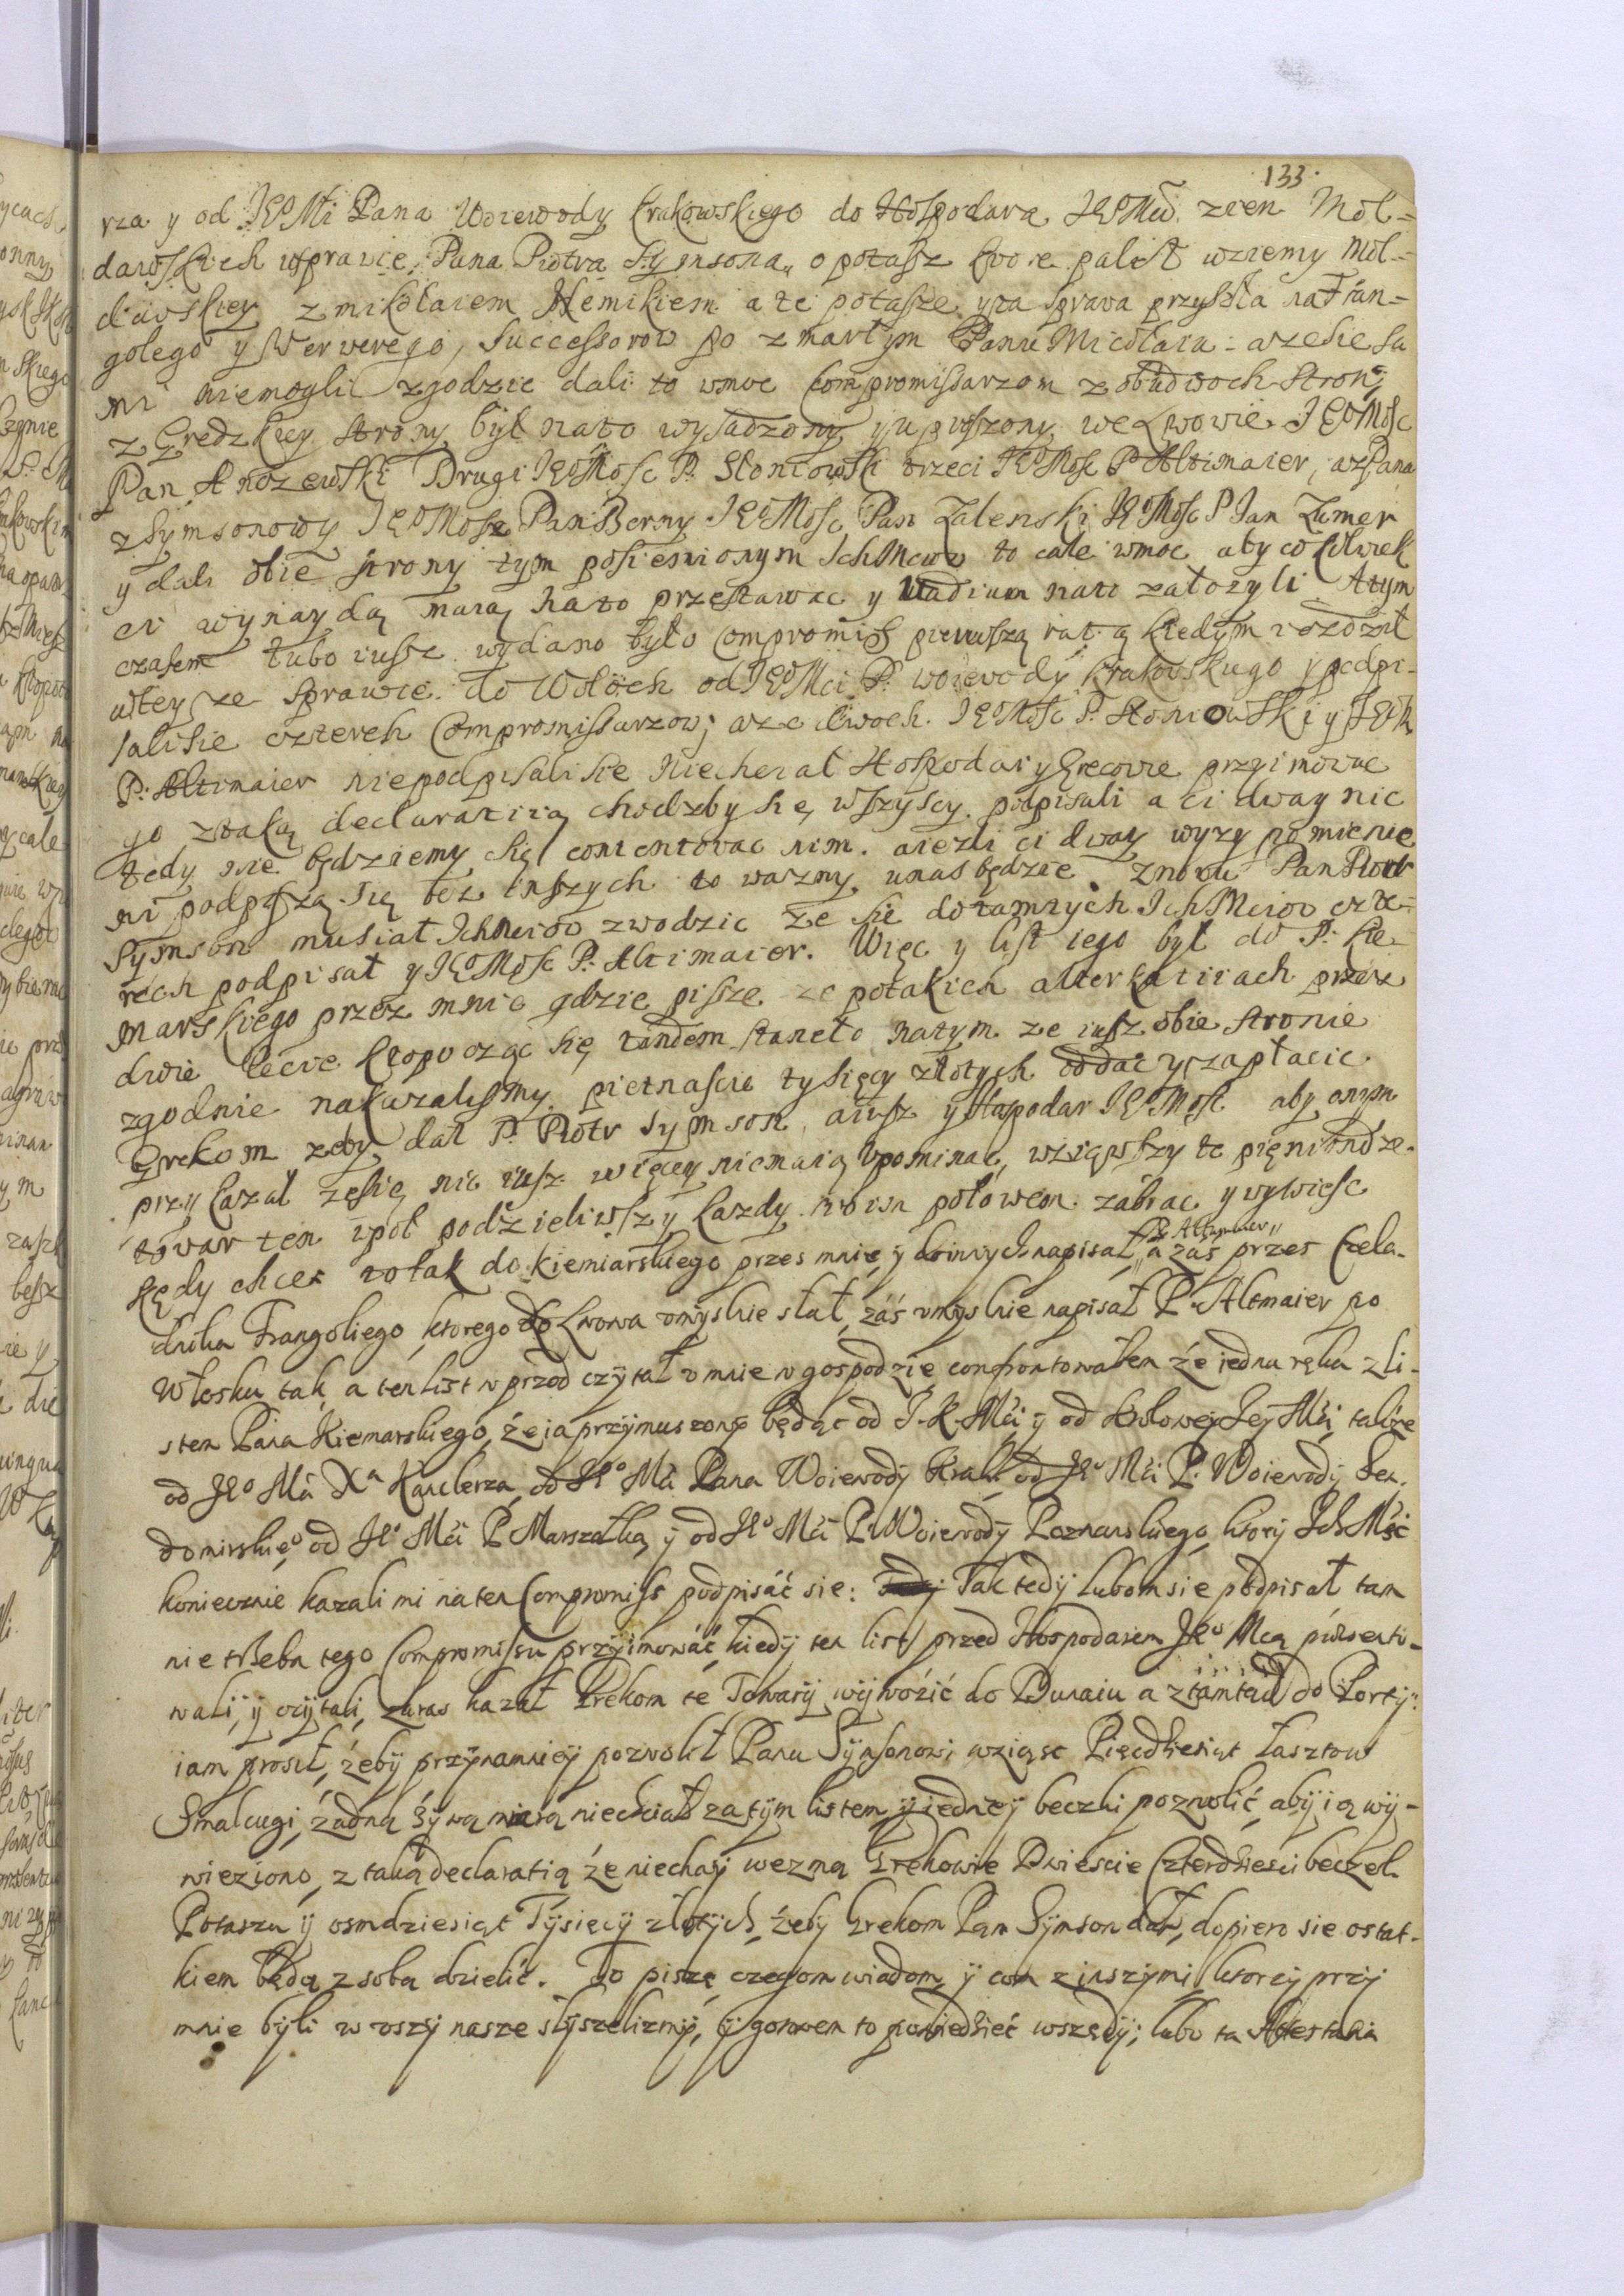 133.
rza y od JEoMci Pana Woiewody krakowskiego do Hospodara JEoMci zięn Mol=
dawskich wsprawie Pana Piotra Symsona, o potasz ktore palił wziemy Mol=
dawskiey z mikołaiem Hemikiem a te potasze yta sprawa przyszła na Fran=
golego y Werwerego, Successorow po zmarłym Panu Micołaiu: azesie sa
mi niemogli zgodzic dali to wmoc Compromissarzom zobudwoch stron;
z Gredzkiey strony był nato wysadzony y uproszony weLwowie JEoMosc
Pan Anczewski Drugi JEoMosc P. Słoniowski trzeci JEoMosc P Altimaier, azPana
zSymsonowy JEoMosc Pan Berny JEoMosc Pan Zalenski JEoMosc P Jan Zumer
y dali obie strony tym posienionym IchMciow to całe wmoc aby co kolwiek
ci wynaydą maią nato przestawac y Uadium nato założyli. Atym
czasem lubo iusz wydano było Compromiss pierwszą ratą kiedym iezdził
wtey ze sprawie do Wołoch odJEoMci P. woiewody krakowskiego y podpi-
salisie czterech Compromissarzow; aze dwoch JEoMosc P. Słoniowski y JEoM
P. Altimaier niepodpisalisie Niechciał Hospodar yGrecowie przyimowac
go ztaką declaratią chocdzby się wszyscy podpisali a ci dway nic
tedy nie będziemy się contentowac nim. aiezli ci dway wyzy pomienie
ni podpiszą się bez inszych to wazny unas będzie. Znowu Pan Piotr
Symson musiał Ichmciow zwodzic że sie dotamtych IchMciow czte-
rech podpisał y JEoMosc P. Altimaier. Więc y list iego był do P. Kie-
marskiego przez mnie gdzie pisze ze potakich alterkatiiach przez
dwie lecie kłopocząc się tandem staneło natym ze iusz obie stronie
zgodnie nakazalismy pietnascie tysięcy złotych oddac y zapłacic
Grekom zeby dał P. Piotr Symson, aiusz yHospodar JEoMosc aby onym
przykazał zesię nic iusz więcey niemaią upominac, wziąwszy te pięniondze.
towar ten wpoł podzieliwszy kazdy swoia połowem zabrac y wywiesc
kędy chcą. to tak do kiemiarskiego przes mnie y do innych napisał, P. Altymaier a zaś przes Czela-
dnika Frangoliego, ktorego do Lwowa umyslnie słał, zaś umyslnie napisał P. Altmaier po
Włosku tak, a ten list wprzod czytał u mnie w gospodzie confrontowałem że iedna ręka z li-
stem Pana Kiemarskiego, że ia przymuszony będąc od J. K. Mći y od krolowey Jey Mći, także
od JEo Mći Xa Kanclerza, od JEo Mći Pana Woiewody Krak: od JEo Mći P. Woiewody Sen-
domirskieo od JEo Mći P. Marszałka, y od JEo Mći P. Woiewody Poznanskiego, ktorzy Ich Mść
koniecznie kazali mi na ten Compromiss podpisáć sie: Tak tedy lubom sie podpisał, tam
nie trzeba tego Compromissu przyimować, kiedy ten list przed Hospodarem JEo Mcą praesento-
wali, y czytali, zaras kazał Grekom te Towary wywozić do Dunaiu a ztamtąd do Porty:
iam prosił, żeby przynamniey pozwolił Panu Symsonowi wziąsc Pięcdziesiąt łasztow
Smalcugi, żadną żywą miarą niechciał za tym listem, y iedney beczki pozwolić, aby ią wy-
wieziono, z taką declaratią że niechay wezmą Grekowie Dwiescie Czterdziesci beczek
Potaszu y osmdziesiąt Tysięcy złotych, żeby Grekom Pan Symson dał, dopiero sie ostat-
kiem będą z sobą dzielić. To piszę czegom wiadom, y com z inszymi, ktorzy przy
mnie byli w uszy nasze słyszelismy, y gotowem to powiedzieć wszędy; lubo ta Attestatia